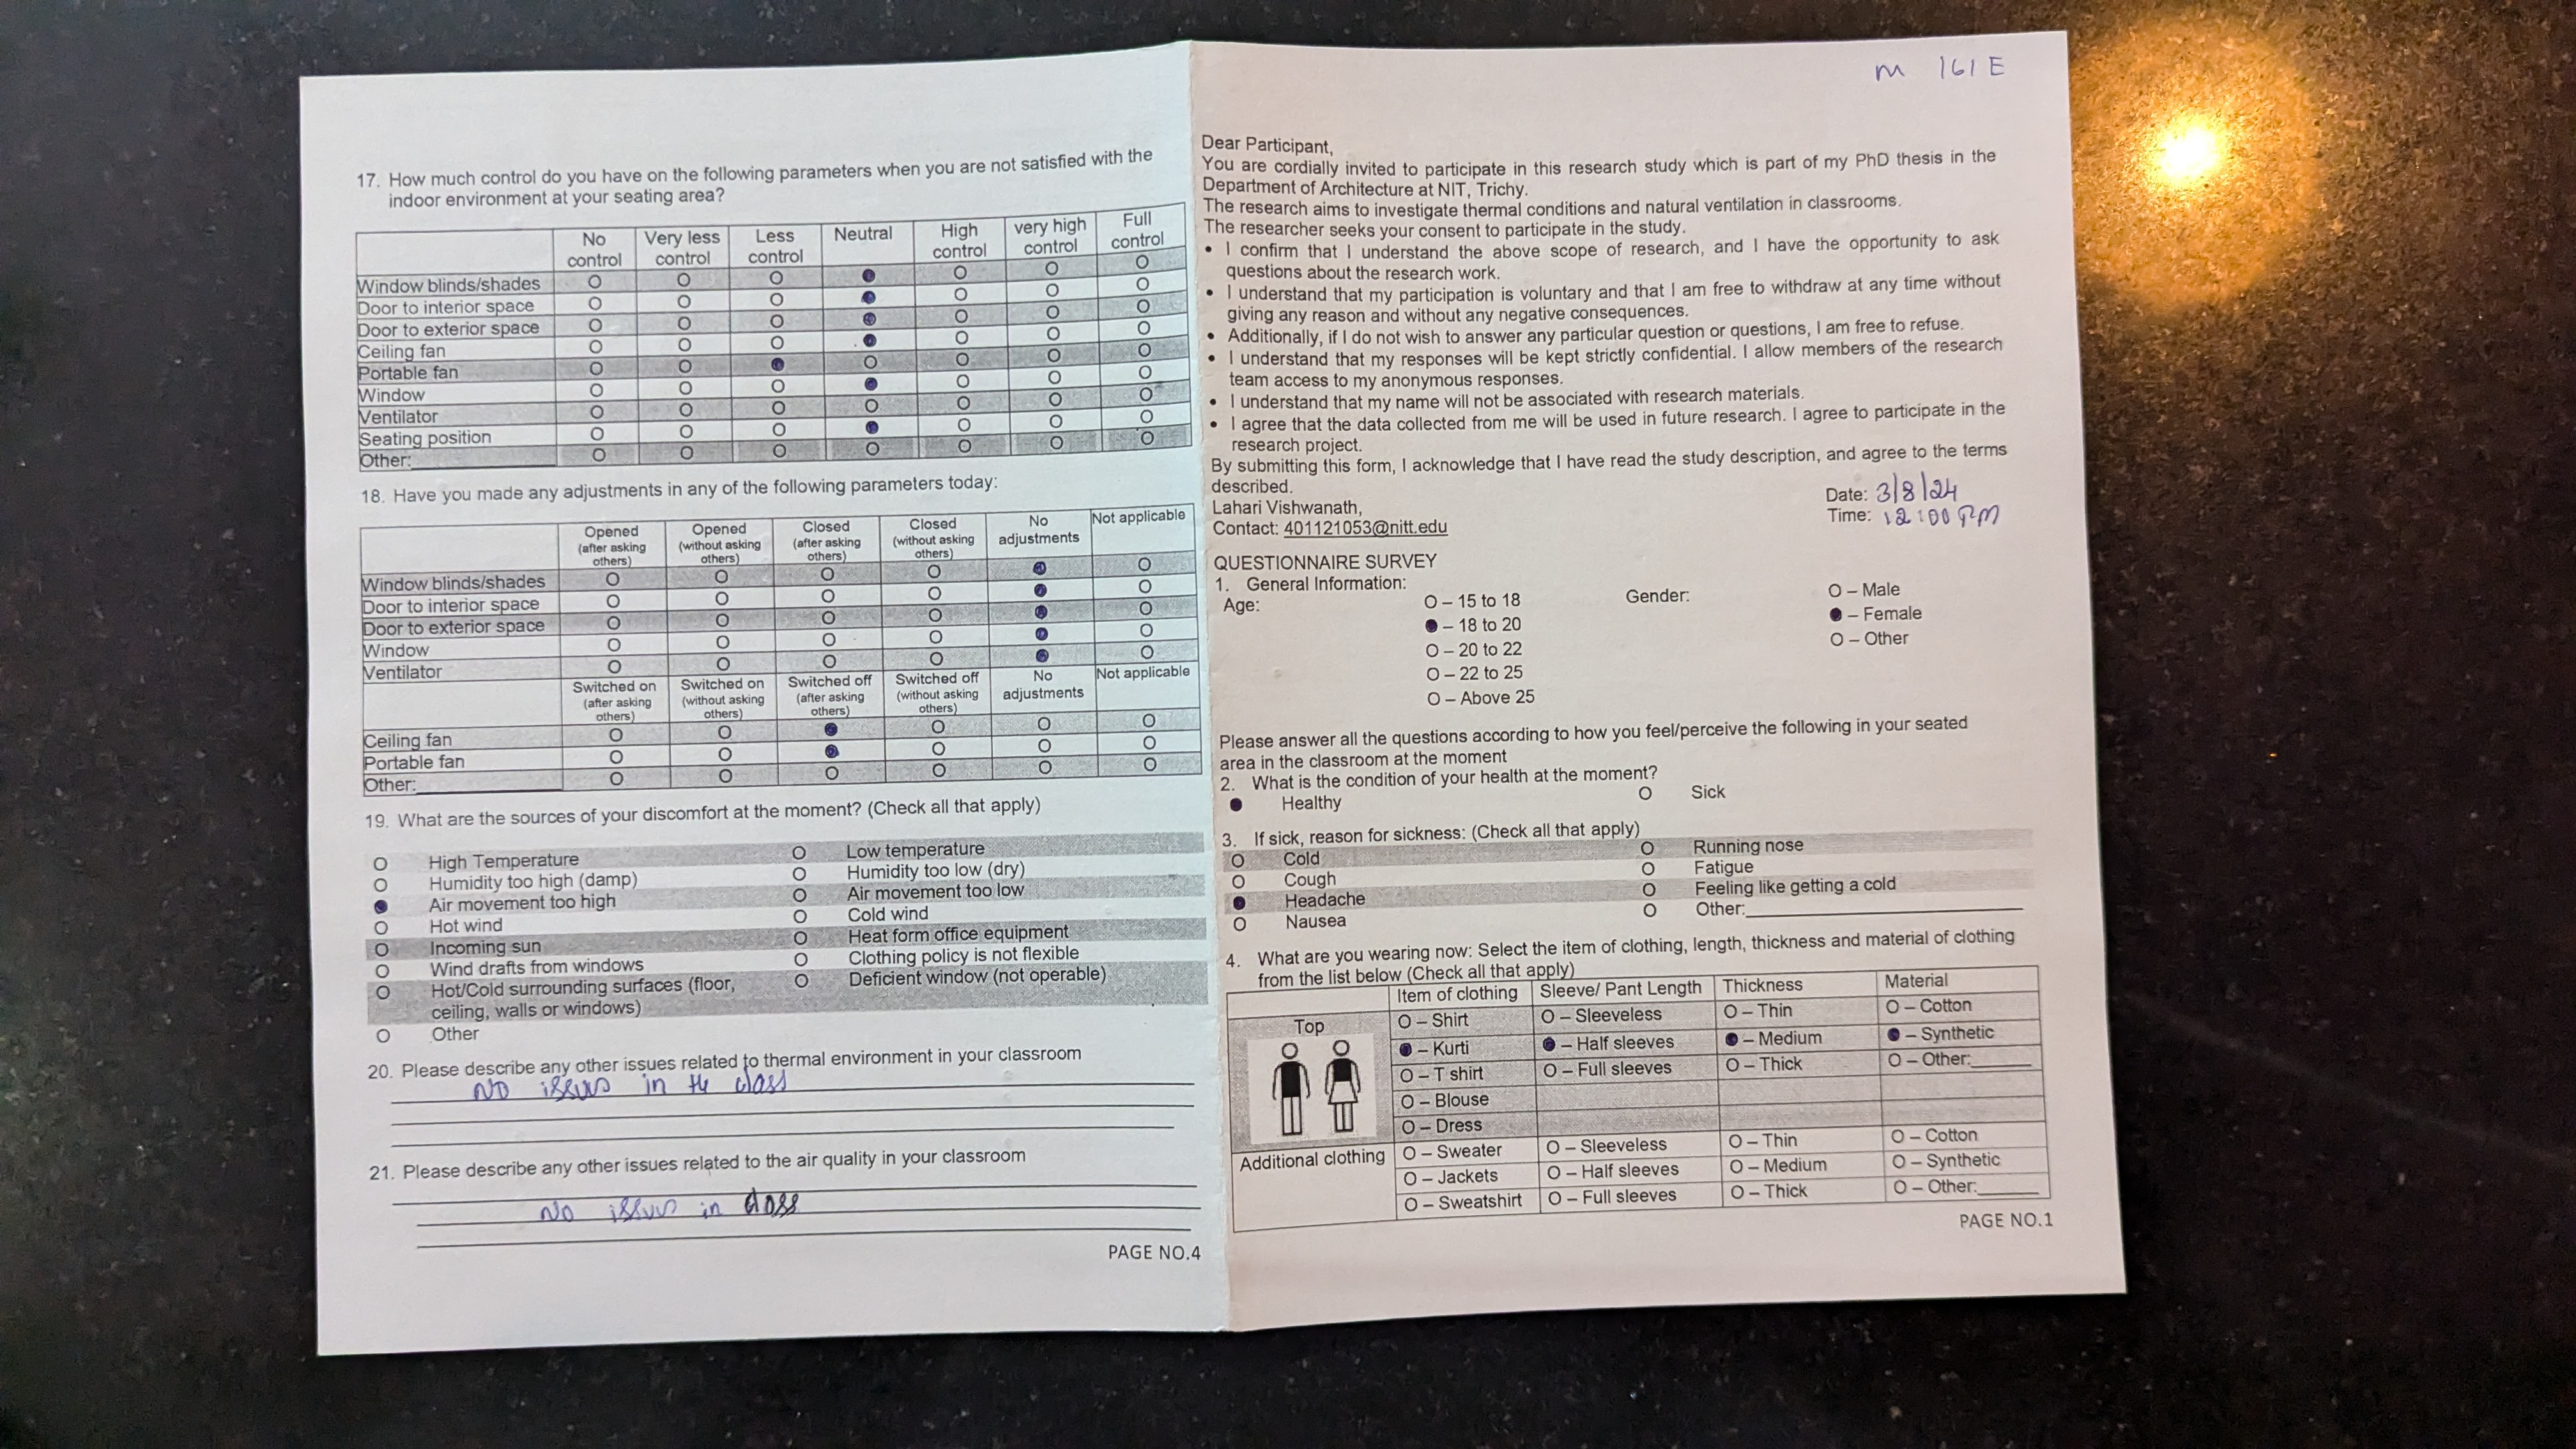 17. How much control do you have on the following parameters when you are not satisfied with the
indoor environment at your seating area?
No control Very less control Less control Neutral High control very high control Full control
Window blinds/shades O O O ● O O O
Door to interior space O O O ● O O O
Door to exterior space O O O ● O O O
Ceiling fan O O O ● O O O
Portable fan O O ● O O O O
Window O O O ● O O O
Ventilator O O O O O O O
Seating position O O O ● O O O
Other: O O O O O O O
18. Have you made any adjustments in any of the following parameters today:
Opened (after asking others) Opened (without asking others) Closed (after asking others) Closed (without asking others) No adjustments Not applicable
Window blinds/shades O O O O ● O
Door to interior space O O O O ● O
Door to exterior space O O O O ● O
Window O O O O ● O
Ventilator O O O O ● O
Switched on (after asking others) Switched on (without asking others) Switched off (after asking others) Switched off (without asking others) No adjustments Not applicable
Ceiling fan O O ● O O O
Portable fan O O ● O O O
Other: O O O O O O
19. What are the sources of your discomfort at the moment? (Check all that apply)
O High Temperature O Low temperature
O Humidity too high (damp) O Humidity too low (dry)
● Air movement too high O Air movement too low
O Hot wind O Cold wind
O Incoming sun O Heat form office equipment
O Wind drafts from windows O Clothing policy is not flexible
O Hot/Cold surrounding surfaces (floor, O Deficient window (not operable)
ceiling, walls or windows)
O Other
20. Please describe any other issues related to thermal environment in your classroom
No issues in the class
21. Please describe any other issues related to the air quality in your classroom
No issues in class
PAGE NO.4
m 161 E
Dear Participant,
You are cordially invited to participate in this research study which is part of my PhD thesis in the
Department of Architecture at NIT, Trichy.
The research aims to investigate thermal conditions and natural ventilation in classrooms.
The researcher seeks your consent to participate in the study.
• I confirm that I understand the above scope of research, and I have the opportunity to ask
questions about the research work.
• I understand that my participation is voluntary and that I am free to withdraw at any time without
giving any reason and without any negative consequences.
• Additionally, if I do not wish to answer any particular question or questions, I am free to refuse.
• I understand that my responses will be kept strictly confidential. I allow members of the research
team access to my anonymous responses.
• I understand that my name will not be associated with research materials.
• I agree that the data collected from me will be used in future research. I agree to participate in the
research project.
By submitting this form, I acknowledge that I have read the study description, and agree to the terms
described.
Lahari Vishwanath,
Contact: 401121053@nitt.edu
Date: 3/8/24
Time: 12:00 PM
QUESTIONNAIRE SURVEY
1. General Information:
Age: O – 15 to 18 Gender: O – Male
● – 18 to 20 ● – Female
O – 20 to 22 O – Other
O – 22 to 25
O – Above 25
Please answer all the questions according to how you feel/perceive the following in your seated
area in the classroom at the moment
2. What is the condition of your health at the moment?
● Healthy O Sick
3. If sick, reason for sickness: (Check all that apply)
O Cold O Running nose
O Cough O Fatigue
● Headache O Feeling like getting a cold
O Nausea O Other:
4. What are you wearing now: Select the item of clothing, length, thickness and material of clothing
from the list below (Check all that apply)
Item of clothing Sleeve/ Pant Length Thickness Material
Top O – Shirt O – Sleeveless O – Thin O – Cotton
● – Kurti ● – Half sleeves ● – Medium ● – Synthetic
O – T shirt O – Full sleeves O – Thick O – Other:
O – Blouse
O – Dress
Additional clothing O – Sweater O – Sleeveless O – Thin O – Cotton
O – Jackets O – Half sleeves O – Medium O – Synthetic
O – Sweatshirt O – Full sleeves O – Thick O – Other:
PAGE NO.1